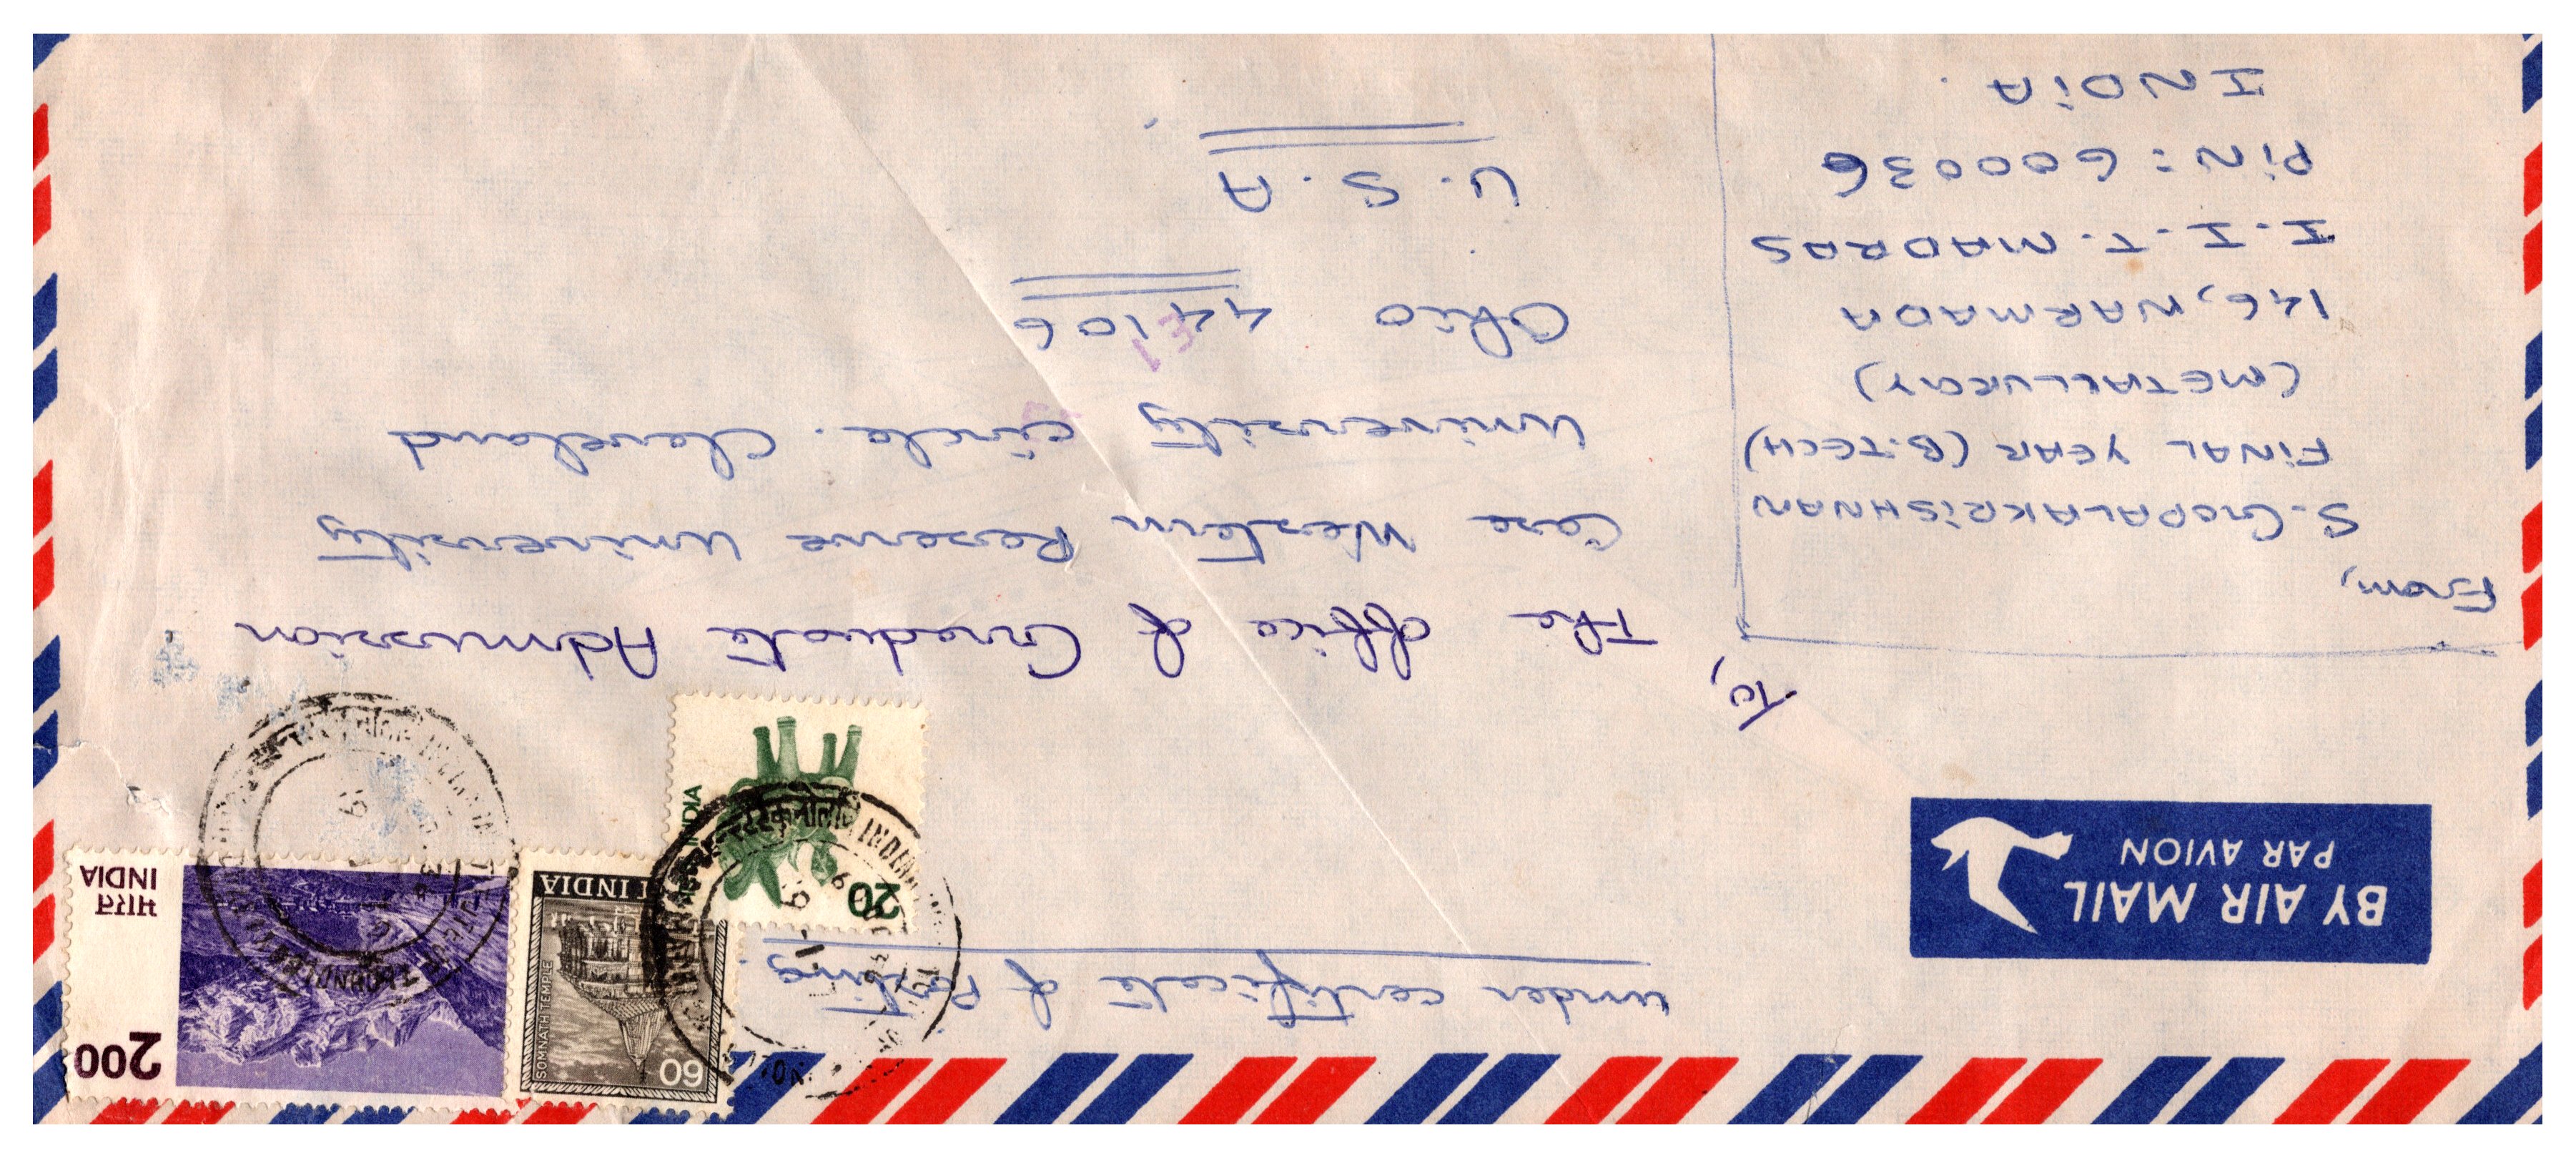 under certificate of Posting.
BY AIR MAIL
PAR AVION
200
भारत
INDIA
60
SOMNATH TEMPLE
INDIA
20
INDIA
To,
The office of Graduate Admission
Case Western Reserve University
University Circle. Cleveland
Ohio 44106
U.S.A
13
From,
S. GOPALAKRISHNAN
FINAL YEAR (B.TECH)
(METALLURGY)
146, NARMADA
I.I.T. MADRAS
PIN: 600036
INDIA.